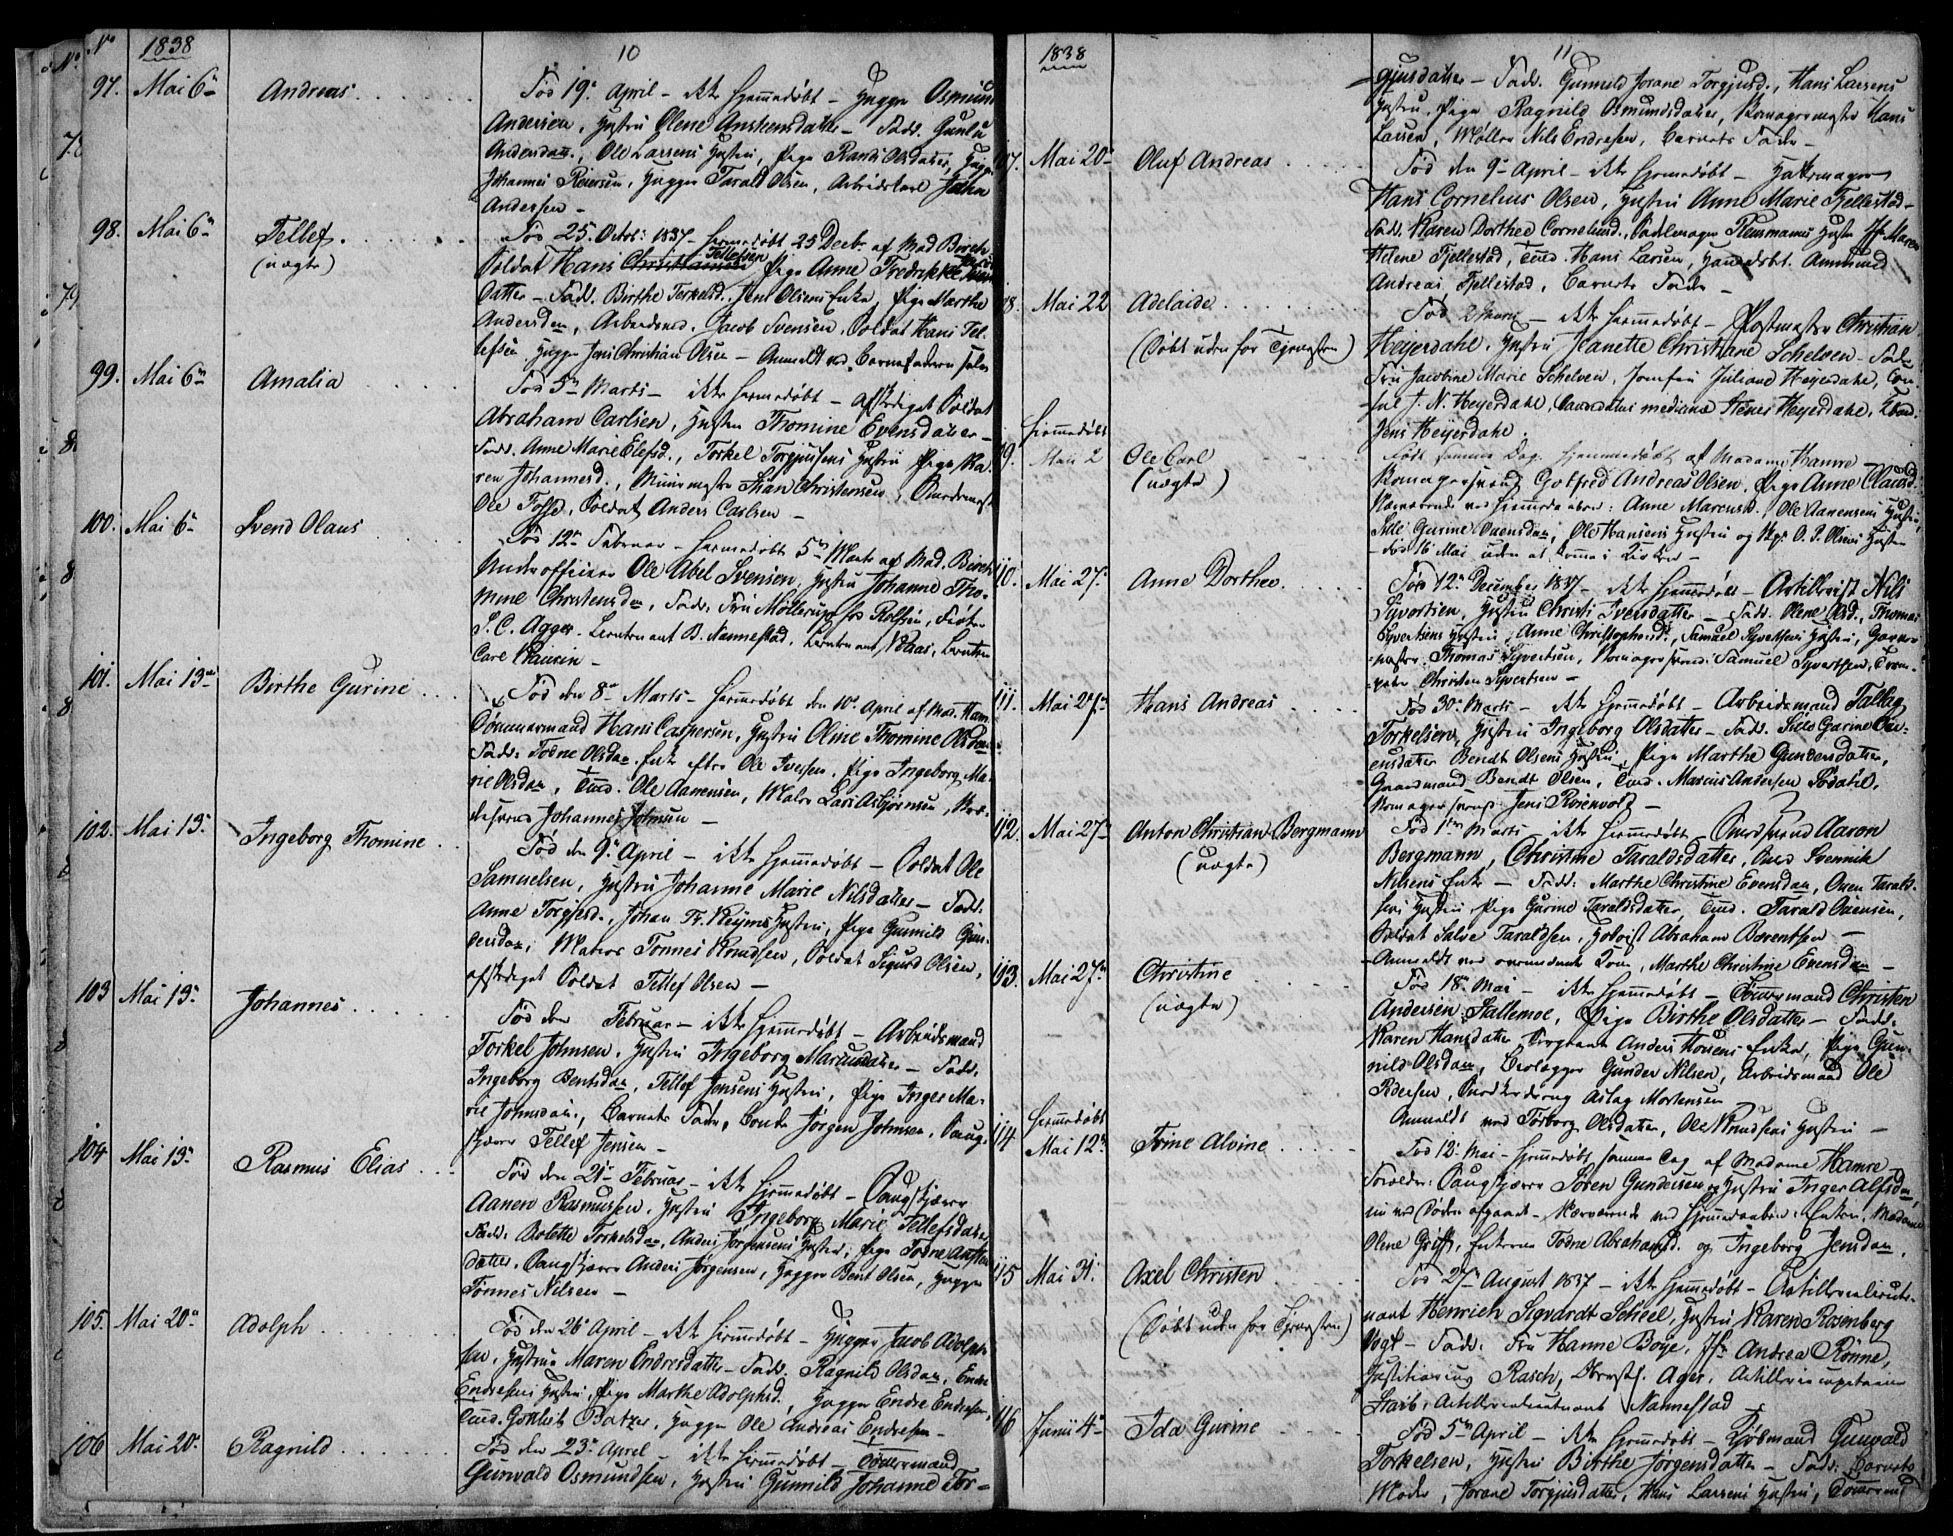 No 1838 10
97. Mai 6te Andreas
Fød 19de April – ikke hjemmedøbt – Hugger Osmund
Andersen, Hustru Olene Anstensdatter – Fadd. Gunlu
Andersdatr., Ole Larsens Hustru, Pige Randi Olsdatter, Hugger
Johannes Reiersen, Hugger Tarald Olsen, Arbeidskarl Johan
Andersen –
98. Mai 6te Tellef.
(uægte)
Fød 25. Octobr: 1837 – hjemmedøbt 25 Decbr. af Mad Birch
Soldat Hans Christiansen Tellefsen Pige Anne Fredrikke
Datter – Fadd. Birthe Terkelsd., Jens Olsens Enke, Pige Marthe
Andersdatr, Arbeidsmd. Jacob Svensen, Soldat Hans Tel-
lefsen Hugger Jens Christian Olsen – Anmeldt ved Barnefaderen selv
99. Mai 6te Amalia
Fød 5te Marts – ikke hjemmedøbt – afskediget Soldat
Abraham Carlsen, Hustru Thomine Evensdatter –
Fadd. Anne Marie Elefsd., Torkel Torgjusens Hustru Pige Ka-
ren Johannesd., Muurmester Stian Christensen,
Ole Foss, Soldat Anders Carlsen –
100. Mai 6te Svend Olaus
Fød 12te Februar – hjemmedøbt 5te Marts af Mad. Birch
Underofficeer Ole Abel Svensen, Hustru Johanne Tho-
mine Christensdr, Fadd. Fru Møllerup, Rolfsen,
S. C. Agger. Lieutenant B. Nannestad, Lieutenant Daae, Lieuten
Carl
101. Mai 13de Birthe Gurine
Fød den 8de Marts – hjemmedøbt den 10de April af Mad. Ham
Tømmermand Hans Caspersen, Hustru Oline Thomine Olsdatr
Fadd: Todne Olsdatr. Enke efter Ole Iversen. Pige Ingeborg Ma-
rie Olsdatr, Tmd. Ole Aanensen, Matros Lars Asbjørnsen,
Johannes Johnsen –
102. Mai 13de Ingeborg Thomine
Fød den 9de April – ikke hjemmedøbt – Soldat Ole
Samuelsen, Hustru Johanne Marie Nilsdatter – Fadd.
Anne Torgjersd., Johan Fr. Keyms Hustru, Pige Gunnild Gun-
dersdatr, Matros Tønnes Knudsen, Soldat Sigurd Olsen,
afskediget Soldat Tellef Olsen –
103 Mai 13de Johannes
Fød den Februar – ikke hjemmedøbt – Arbeidsmand
Torkel Johnsen, Hustru Ingeborg Marcusdatter – Fadd.
Ingeborg Bentsdatr, Tellef Jensens Hustru, Pige Inger Ma-
rie Johnsdatr., Barnets Fader, Bonde Jørgen Johnsen, Saug-
skjærer Tellef Jensen –
104 Mai 13de Rasmus Elias
Fød den 21de Februar – ikke hjemmedøbt – Saugskjærer
Aanen Rasmussen, Hustru Ingeborg Marie Tellefsdatter
Fadd. Bolette Torkelsdr, Anders Jørgensens Hustru, Pige Todne Aanen
datter, Saugskjærer Anders Jørgensen, Hugger Bent Olsen, Hugger
Tønnes Nilsen –
105. Mai 20de Adolph
Fød den 26de April – ikke hjemmedøbt – Hugger Jacob Adolph
sen, Hustru Maren Endresdatter – Fadd. Ragnild Olsdatr, Endre
Endresens Hustru, Pige Marthe Adolphsd., Hugger Endre Endresen,
Tmd. Gotlieb Batzer, Hugger Ole Andreas Endresen –
106 Mai 20de Ragnild
Fød den 23de April – ikke hjemmedøbt – Tømmermand
Gunvald Osmundsen, Hustru Gunnild Johanne Tor-
1838 11
gjusdatter – Fadd. Gunnild Jorane Torgjusd., Hans Larsens
Hustru, Pige Ragnild Osmundsdatter, Skomagermester Hans
Larsen, Møller Nils Endresen, Barnets Fader –
107. Mai 20de Oluf Andreas
Fød den 9de April – ikke hjemmedøbt – Hattemager
Hans Cornelius Olsen, Hustru Anne Marie Fjellestad –
Fadd. Karen Dorthea Corneliusd., Sadelmager Reusmanns Hustru Jfr Maren
Helene Fjellestad, Tmd. Hans Larsen, Handelsbt. Ammund
Andreas Fjellestad, Barnets Fader –
108. Mai 22 Adelaide
(Døbt uden for Tjenesten)
Fød 2 – ikke hjemmedøbt – Postmester Christian
Heijerdahl, Hustru Jeanette Christiane Schelven – Fadd.
Fru Jacobine Marie Schelven, Jomfru Juliane Heyerdahl, Con-
sul J. N. Heyerdahl, Candidatus medicinæ Heyerdahl,
Jens Heyerdahl.
109. Hjemmedøbt
Mai 2 Ole Carl
(uægte)
Født samme Dag. hjemmedøbt af Madame Hamre –
Skomagersvend Gotfred Andreas Olsen, Pige Anne Clausd.
Nærværende ved hjemmedaaben: Anne Marcusd., Ole Aanensens Hustru,
Gurine Svensdatr, Ole Hansens Hustru og O. P. Olsens Hustru
– død 16 Mai uden at komme i Kirken –
110. Mai 27de Anne Dorthee.
Fød 12te December 1837 – ikke hjemmedøbt – Artillerist Nils
Syvertsen, Hustru Christi Iversdatter – Fadd. Olene Olsd., Thomas
Syvertsens Hustru, Anne Christophersd., Samuel Syvertsens Hustru, Garver-
mester Thomas Syvertsen, Skomagersvend Samuel Syvertsen, Trom-
peter Christen Syvertsen –
111. Mai 27de Hans Andreas
Fød 30te Marts – ikke hjemmedøbt – Arbeidsmand Tallag
Torkelsen, Hustru Ingeborg Olsdatter – Fadd. Gurine
ensdatter Bendt Olsens Hustru, Pige Marthe Gundersdatter,
Gaardmand Bendt Olsen, Tmd. Marcus Andersen Sødahl,
Skomagersvend Jens Rosenvold –
112. Mai 27de Anton Christian Bergmann
(uægte)
Fød 1ste Marts – ikke hjemmedøbt – Snedkersvend Aaron
Bergmann, Christine Taraldsdatter, Svennik
Nilsens Enke – Fadd: Marthe Christine Evensdatr, Owen Tarald-
sens Hustru, Pige Gurine Taraldsdatter, Tmd. Tarald Svensen,
Soldat Salve Taraldsen, Hoboist Abraham Berentsen –
– Anmeldt ved ovennævnte Kone, Marthe Christine Evensdatr –
113. Mai 27de Christine
(uægte)
Fød 18de Mai – ikke hjemmedøbt – Tømmermand Christen
Andersen Stallemoe, Pige Birthe Olsdatter – Fadd.
Karen Hansdatter Anders Enke, Pige Gun-
nild Olsdatr, Brolægger Gunder Nilsen, Arbeidsmand Ole
Pedersen, Snedkerdreng Aslag Mortensen
Anmeldt ved Torborg Olsdatter, Ole Knudsens Hustru –
114. Hjemmedøbt
Mai 12te Trine Alvine
Fød 12te Mai – hjemmedøbt samme Dag af Madame Hamre
Forældre: Saugskjærer Søren Gundersen og Hustru Inger Alfsdr,
nu ved Døden afgaaet – Nærværende ved Hjemmedaaben: Enken, Madame
Olene Enkerne Todne Abrahamsd. og Ingeborg Jensdatr.
115 Mai 31. Axel Christen
(Døbt uden for Tjenesten)
Fød 27de August 1837 – ikke hjemmedøbt – Artillerielieute-
nant Henrich Sigvardt Scheel, Hustru Karen Rosenberg
Vogt – Fadd. Fru Hanne Boye, Jfr Andrea Rønne,
Justitiarius Rasch, Agier, Artilleriecapitaine
Staib, Artillerielieutenant Nannestad –
116 Junii 4de Ida Gurine
Fød 5te April – ikke hjemmedøbt – Kjøbmand Gunvald
Torkelsen, Hustru Birthe Jørgensdatter – Fadd: Barnets
Moder, Jorane Torgjusdatter, Hans Larsens Hustru, Tømmermd